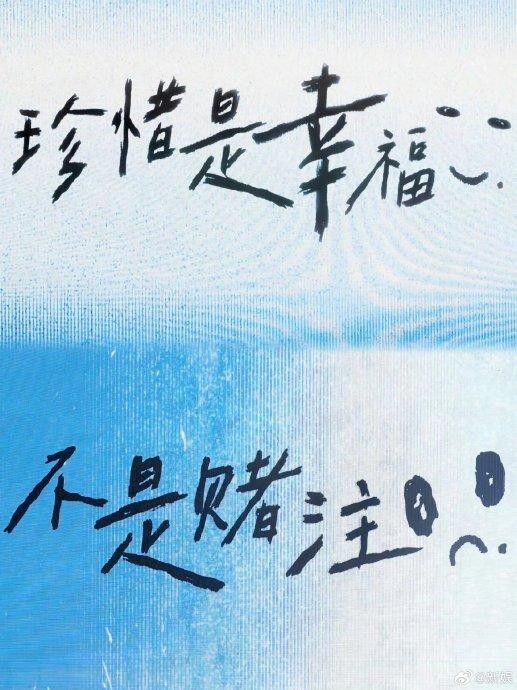 珍惜是幸福
不是赌注
@新娱